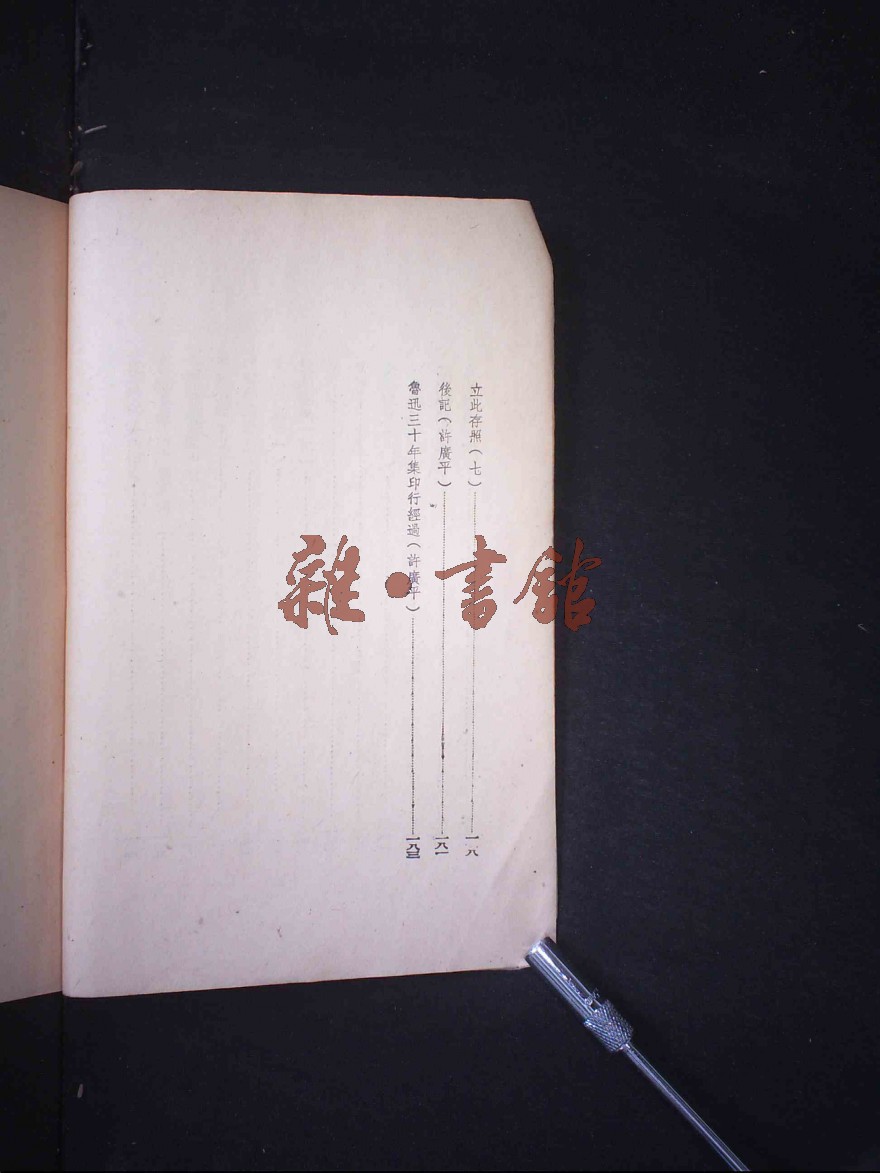 立此存照(七)……一八
後記(許廣平)……一八一
魯迅三十年集印行經過(許廣平)……一八三
雜·書館